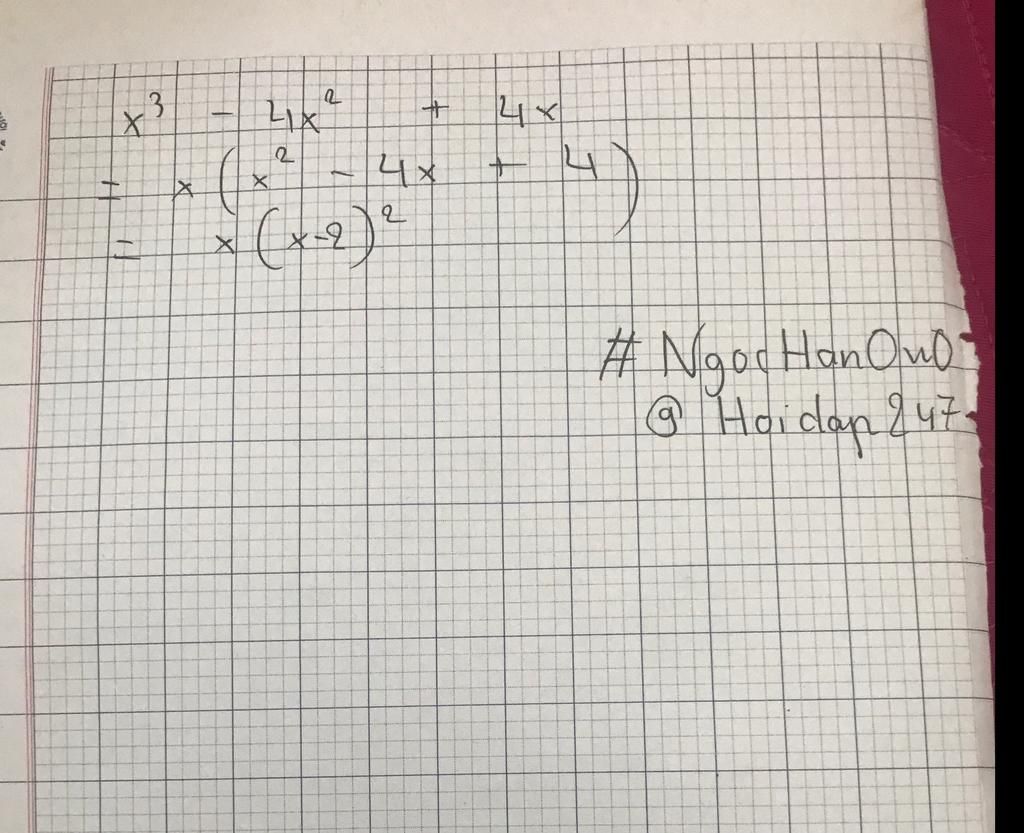 x³ - 4x² + 4x
= x (x² - 4x + 4)
= x (x-2)²
# NgocHanOwO
@ Hoidap247